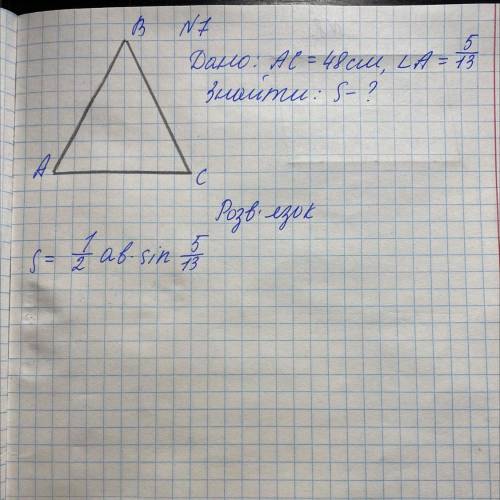 B N7
Дано: AC = 48см, ∠A = 5/13
Знайти: S - ?
A C
Розв'язок
S = 1/2 ab · sin 5/13